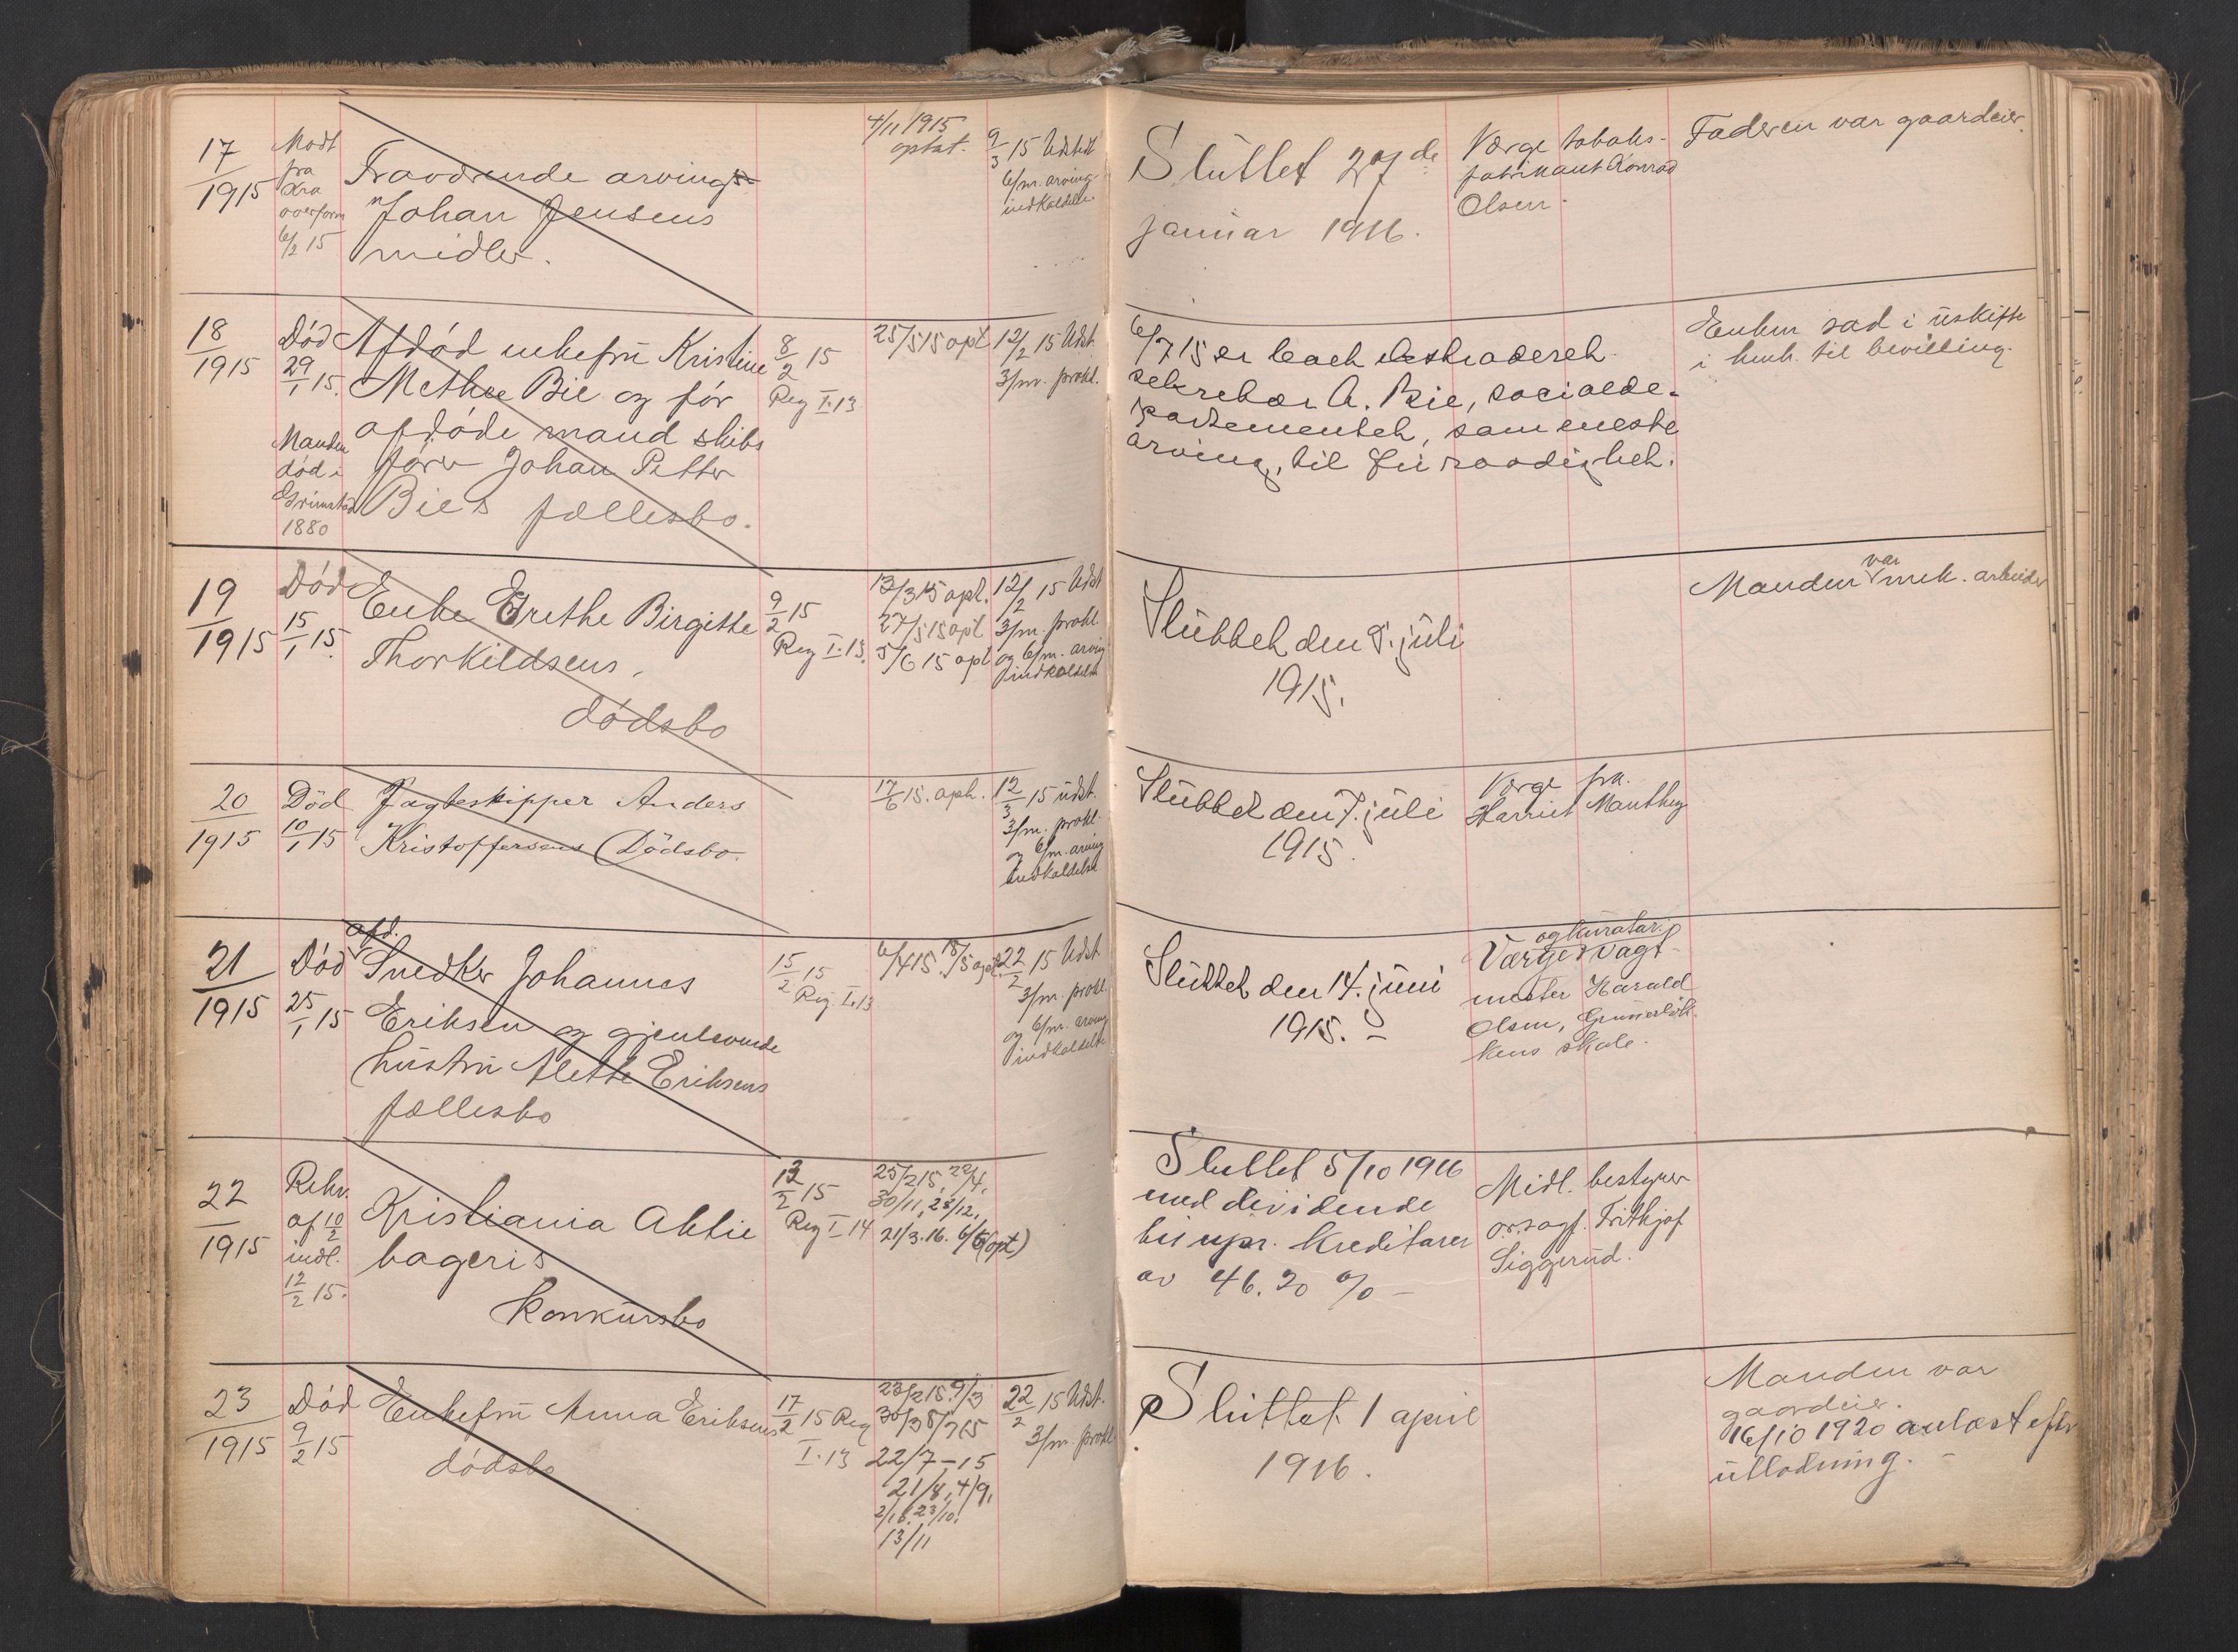 17
1915
Modt
fra
Kra
overform
6/2 15
Fraværende arving
Johan Jensens
midler.
4/11 1915
optat.
9/3 15 Udstedt
6/m. arving-
indkaldelse.
Sluttet 27de
januar 1916.
Værge tobaks-
fabrikant Konrad
Olsen.
Faderen var gaardeier.
18
1915
Død
29/1 15.
Manden
død i
Grimstad
1880
Afdød enkefru Kristine
Methee Bie og før
afdøde mand skibs
fører Johan Petter
Bies fællesbo.
8/2 15
Reg I.13
25/5 15 opt
12/2 15 Udst.
3/m. prokl.
6/7 15 er boet ekstraderet
sekretær A. Bie, socialde-
partementet, som eneste
arving, til fri raadighet.
Enken sad i uskifte
i henh. til bevilling.
19
1915
Død
15/1 15.
Enke Grethe Birgitte
Thorkildsens,
dødsbo
9/2 15
Reg I.13.
13/3 15 opt.
27/5 15 opt
5/6 15 opt
12/2 15 Udst
3/m. prokl.
og 6/m. arving
indkaldelse
Sluttet den 8. juli
1915.
Manden var mek. arbeider
20
1915
Død
10/1 15
Jagteskipper Anders
Kristoffersens Dødsbo.
17/6 15. opt.
12/3 15 udst.
3/m. prokl.
og 6/m. arving
indkaldelse
Sluttet den 7. juli
1915.
Værge frk.
Harriet Manthey
21
1915
Død
25/1 15
afd.
Snedker Johannes
Eriksen og gjenlevende
hustru Alette Eriksens
fællesbo
15/2 15
Reg. I.13
6/4 15. 18/5 opt.
22/2 15 Udst
3/m. prokl.
og 6/m. arving
indkaldelse
Sluttet den 14. juni
1915. –
og kurator:
Værge vagt-
mester Harald
Olsen, Grünerløk-
kens skole.
22
1915
Rekv.
af 10/2
indl.
12/2 15.
Kristiania Aktie
bageris
Konkursbo
12/2 15
Reg I 14
25/2 15, 22/4,
30/11, 28/12,
21/3.16. 6/5 (opt)
Sluttet 5/10 1916
med dividende
til upr. Kreditorer
av 46.20 % –
Midl. bestyrer
o.r.sagf. Frithjof
Siggerud.
23
1915
Død
9/2 15
Enkefru Anna Eriksens
dødsbo
17/2 15 Reg
I.13
23/2 15. 9/3
30/3 8/7 15
22/7 – 15
21/8, 4/9,
2/10. 23/10.
13/11
22/2 15 Udst.
3/m. prokl
Sluttet 1 april
1916.
Manden var
gaardeier.
16/10 1920 anlæst efter
utlodning. –